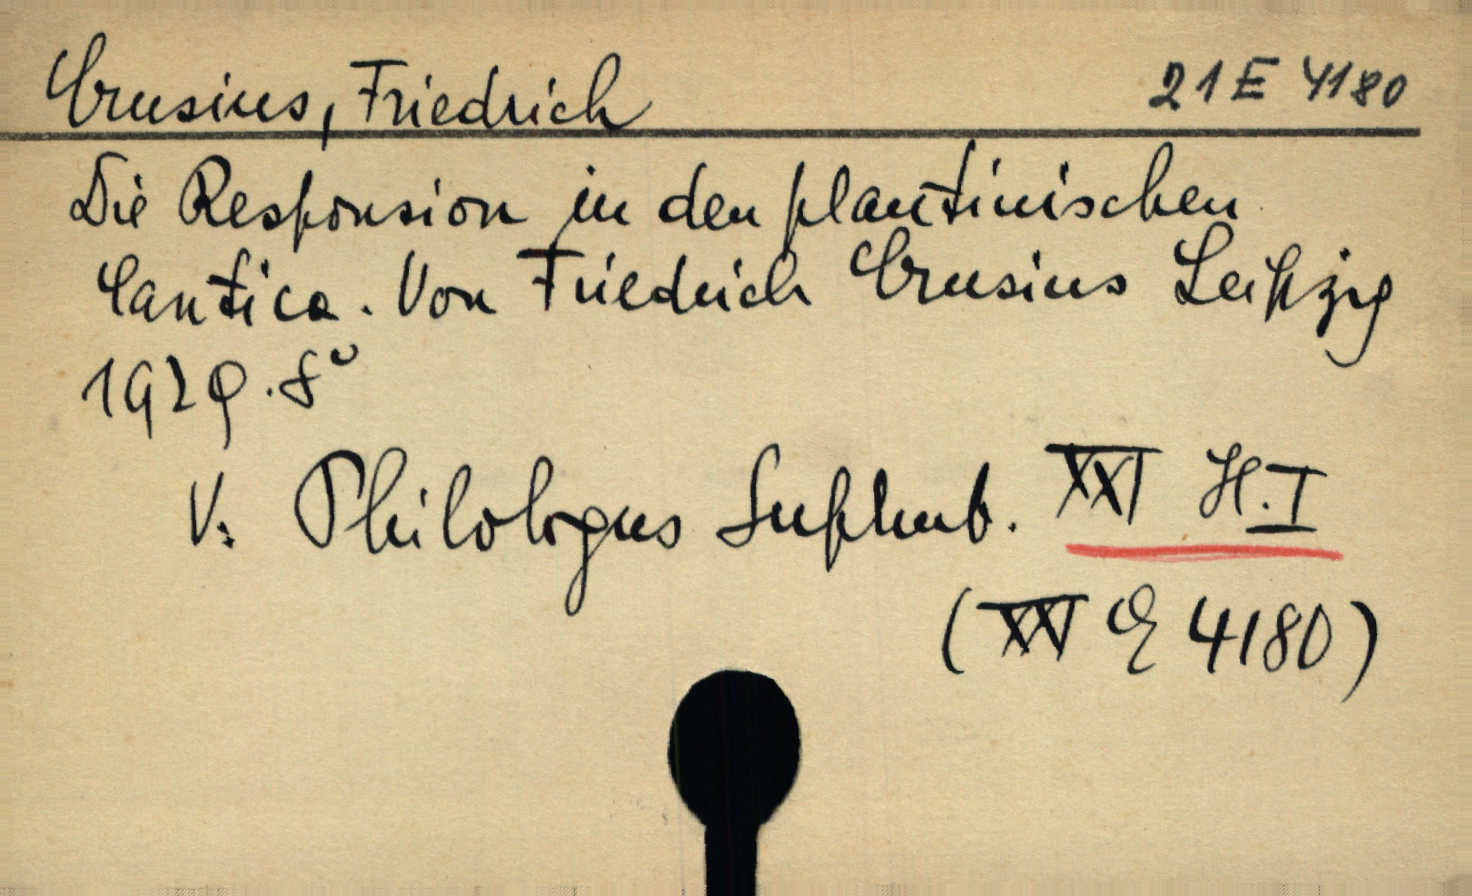 Crusius, Friedrich 21 E 4180
Die Responsion in den plautinischen
Cantica. Von Friedrich Crusius Leipzig
1929. 8°
V: Philologus Supplmb. XXI H. I
(XXI E 4180)